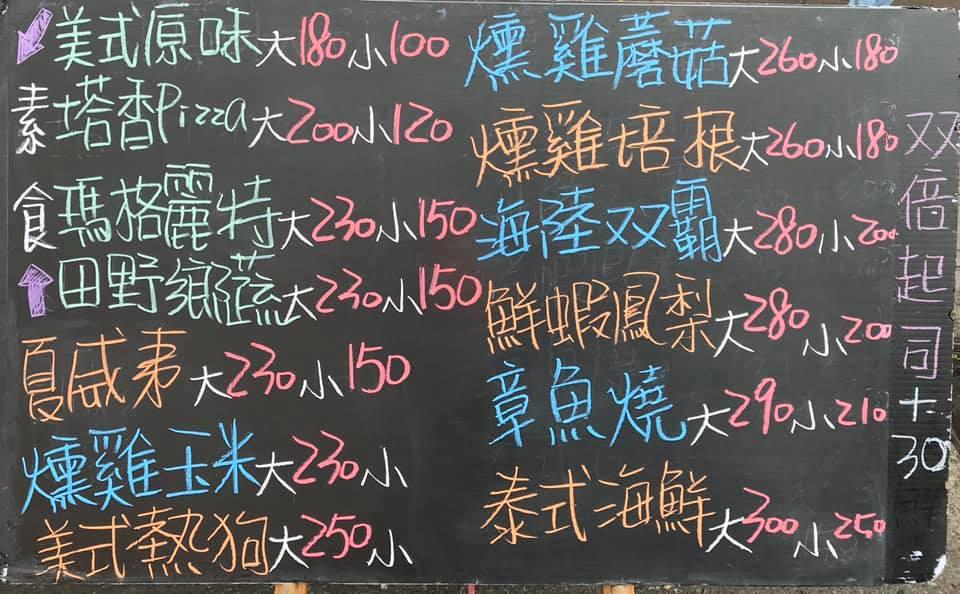 美式原味大180小100
塔香Pizza大200小120
瑪格麗特大230小150
田野鄉蔬大230小150
素食
夏威夷大230小150
燻雞玉米大230小
美式熱狗大250小
燻雞蘑菇大260小180
燻雞培根大260小180
海陸双霸大280小200
鮮蝦鳳梨大280小200
章魚燒大290小210
泰式海鮮大300小250
双倍起司+30